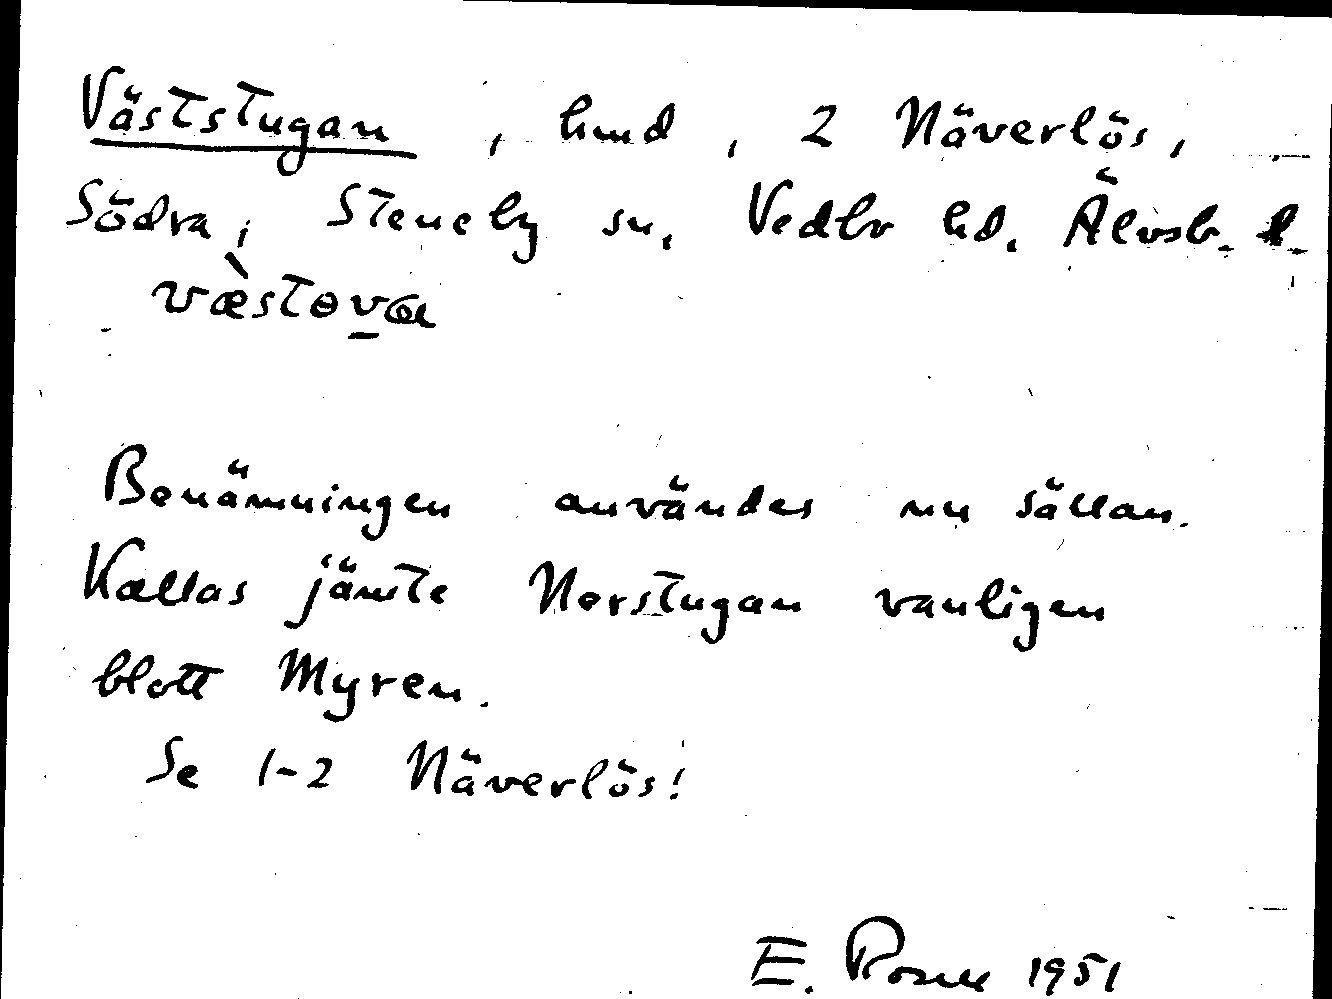 Väststugan, hmd, 2 Näverlös,
Södra, Steneby sn, Vedbo hd. Älvsb. l.
væ̀stova
Benämningen användes nu sällan.
Kallas jämte Norstugan vanligen
blott Myren.
Se 1-2 Näverlös!
E. 1951